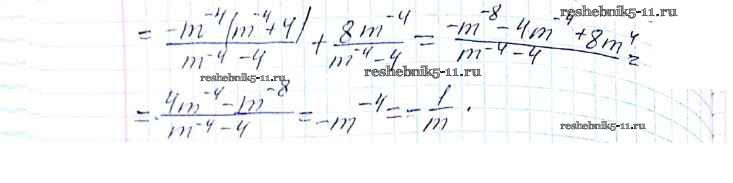 reshebnik5-11.ru
= -m⁻⁴(m⁻⁴+4) / m⁻⁴-4 + 8m⁻⁴ / m⁻⁴-4 = -m⁻⁸-4m⁻⁴+8m⁴ / m⁻⁴-4 =
reshebnik5-11.ru reshebnik5-11.ru reshebnik5-11.ru
= 4m⁻⁴-1m⁻⁸ / m⁻⁴-4 = -m⁻⁴ = -1/m.
reshebnik5-11.ru